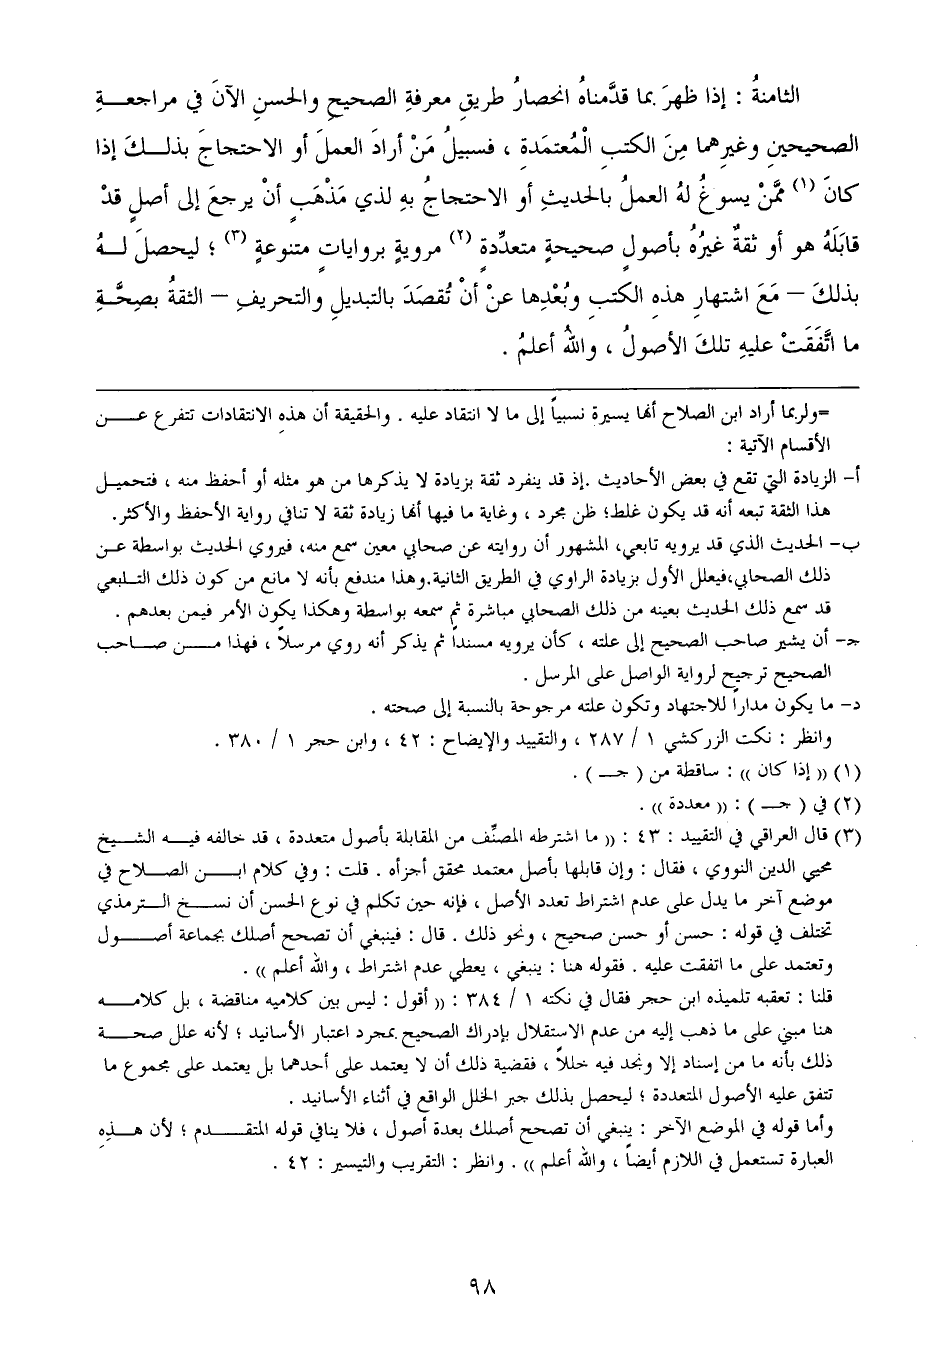 الثامنةُ : إذا ظهرَ بما قدَّمناهُ انحصارُ طريقِ معرفةِ الصحيحِ والحسنِ الآنَ في مراجعــةِ
الصحيحينِ وغيرِهما مِنَ الكتبِ الْمُعتمَدةِ ، فسبيلُ مَنْ أرادَ العملَ أو الاحتجاجَ بذلــكَ إذا
كانَ (١) ممَّنْ يسوغُ لهُ العملُ بالحديثِ أو الاحتجاجُ بهِ لذي مَذْهَبٍ أنْ يرجعَ إلى أصلٍ قدْ
قابَلَهُ هو أو ثقةٌ غيرُهُ بأصولٍ صحيحةٍ متعدِّدةٍ (٢) مرويةٍ برواياتٍ متنوعةٍ (٣) ؛ ليحصلَ لــهُ
بذلكَ – مَعَ اشتهارِ هذهِ الكتبِ وبُعْدِها عنْ أنْ تُقصَدَ بالتبديلِ والتحريفِ – الثقةُ بصِحَّــةِ
ما اتَّفَقَتْ عليهِ تلكَ الأصولُ ، واللهُ أعلمُ .
=ولربما أراد ابن الصلاح أنها يسيرة نسبياً إلى ما لا انتقاد عليه . والحقيقة أن هذه الانتقادات تتفرع عــن
الأقسام الآتية :
أ– الزيادة التي تقع في بعض الأحاديث .إذ قد ينفرد ثقة بزيادة لا يذكرها من هو مثله أو أحفظ منه ، فتحميل
هذا الثقة تبعه أنه قد يكون غلط؛ ظن مجرد ، وغاية ما فيها أنها زيادة ثقة لا تنافي رواية الأحفظ والأكثر.
ب– الحديث الذي قد يرويه تابعي، المشهور أن روايته عن صحابي معين سمع منه، فيروي الحديث بواسطة عــن
ذلك الصحابي،فيعلل الأول بزيادة الراوي في الطريق الثانية.وهذا مندفع بأنه لا مانع من كون ذلك التـابعي
قد سمع ذلك الحديث بعينه من ذلك الصحابي مباشرة ثم سمعه بواسطة وهكذا يكون الأمر فيمن بعدهم .
جـ– أن يشير صاحب الصحيح إلى علته ، كأن يرويه مسنداً ثم يذكر أنه روي مرسلاً ، فهذا مــن صــاحب
الصحيح ترجيح لرواية الواصل على المرسل .
د– ما يكون مداراً للاجتهاد وتكون علته مرجوحة بالنسبة إلى صحته .
وانظر : نكت الزركشي ١ / ٢٨٧ ، والتقييد والإيضاح : ٤٢ ، وابن حجر ١ / ٣٨٠ .
(١) (( إذا كان )) : ساقطة من ( جــ ) .
(٢) في ( جــ ) : (( معددة )) .
(٣) قال العراقي في التقييد : ٤٣ : (( ما اشترطه المصنِّف من المقابلة بأصول متعددة ، قد خالفه فيــه الشــيخ
محيي الدين النووي ، فقال : وإن قابلها بأصل معتمد محقق أجزأه . قلت : وفي كلام ابــن الصــلاح في
موضع آخر ما يدل على عدم اشتراط تعدد الأصل ، فإنه حين تكلم في نوع الحسن أن نســخ الــترمذي
تختلف في قوله : حسن أو حسن صحيح ، ونحو ذلك . قال : فينبغي أن تصحح أصلك بجماعة أصــول
وتعتمد على ما اتفقت عليه . فقوله هنا : ينبغي ، يعطي عدم اشتراط ، والله أعلم )) .
قلنا : تعقبه تلميذه ابن حجر فقال في نكته ١ / ٣٨٤ : (( أقول : ليس بين كلاميه مناقضة ، بل كلامــه
هنا مبني على ما ذهب إليه من عدم الاستقلال بإدراك الصحيح بمجرد اعتبار الأسانيد ؛ لأنه علل صحــة
ذلك بأنه ما من إسناد إلا ونجد فيه خللاً ، فقضية ذلك أن لا يعتمد على أحدهما بل يعتمد على مجموع ما
تتفق عليه الأصول المتعددة ؛ ليحصل بذلك جبر الخلل الواقع في أثناء الأسانيد .
وأما قوله في الموضع الآخر : ينبغي أن تصحح أصلك بعدة أصول ، فلا ينافي قوله المتقــدم ؛ لأن هــذه
العبارة تستعمل في اللازم أيضاً ، والله أعلم )) . وانظر : التقريب والتيسير : ٤٢ .
٩٨